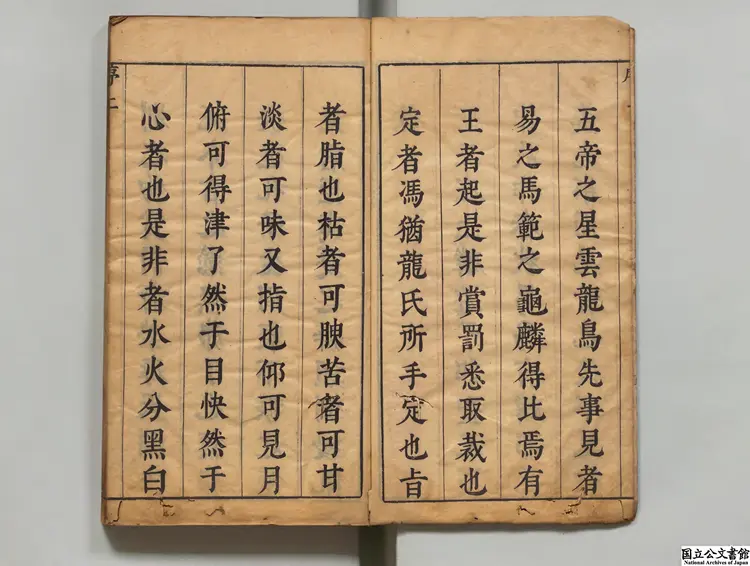 五帝之星雲龍鳥先事見者
易之馬範之龜麟得比焉有
王者起是非賞罰悉取裁也
定者馮猶龍氏所手定也旨
者脂也枯者可腴苦者可甘
淡者可味又指也仰可見月
俯可得津了然于目快然于
心者也是非者水火分黑白
序二
国立公文書館
National Archives of Japan